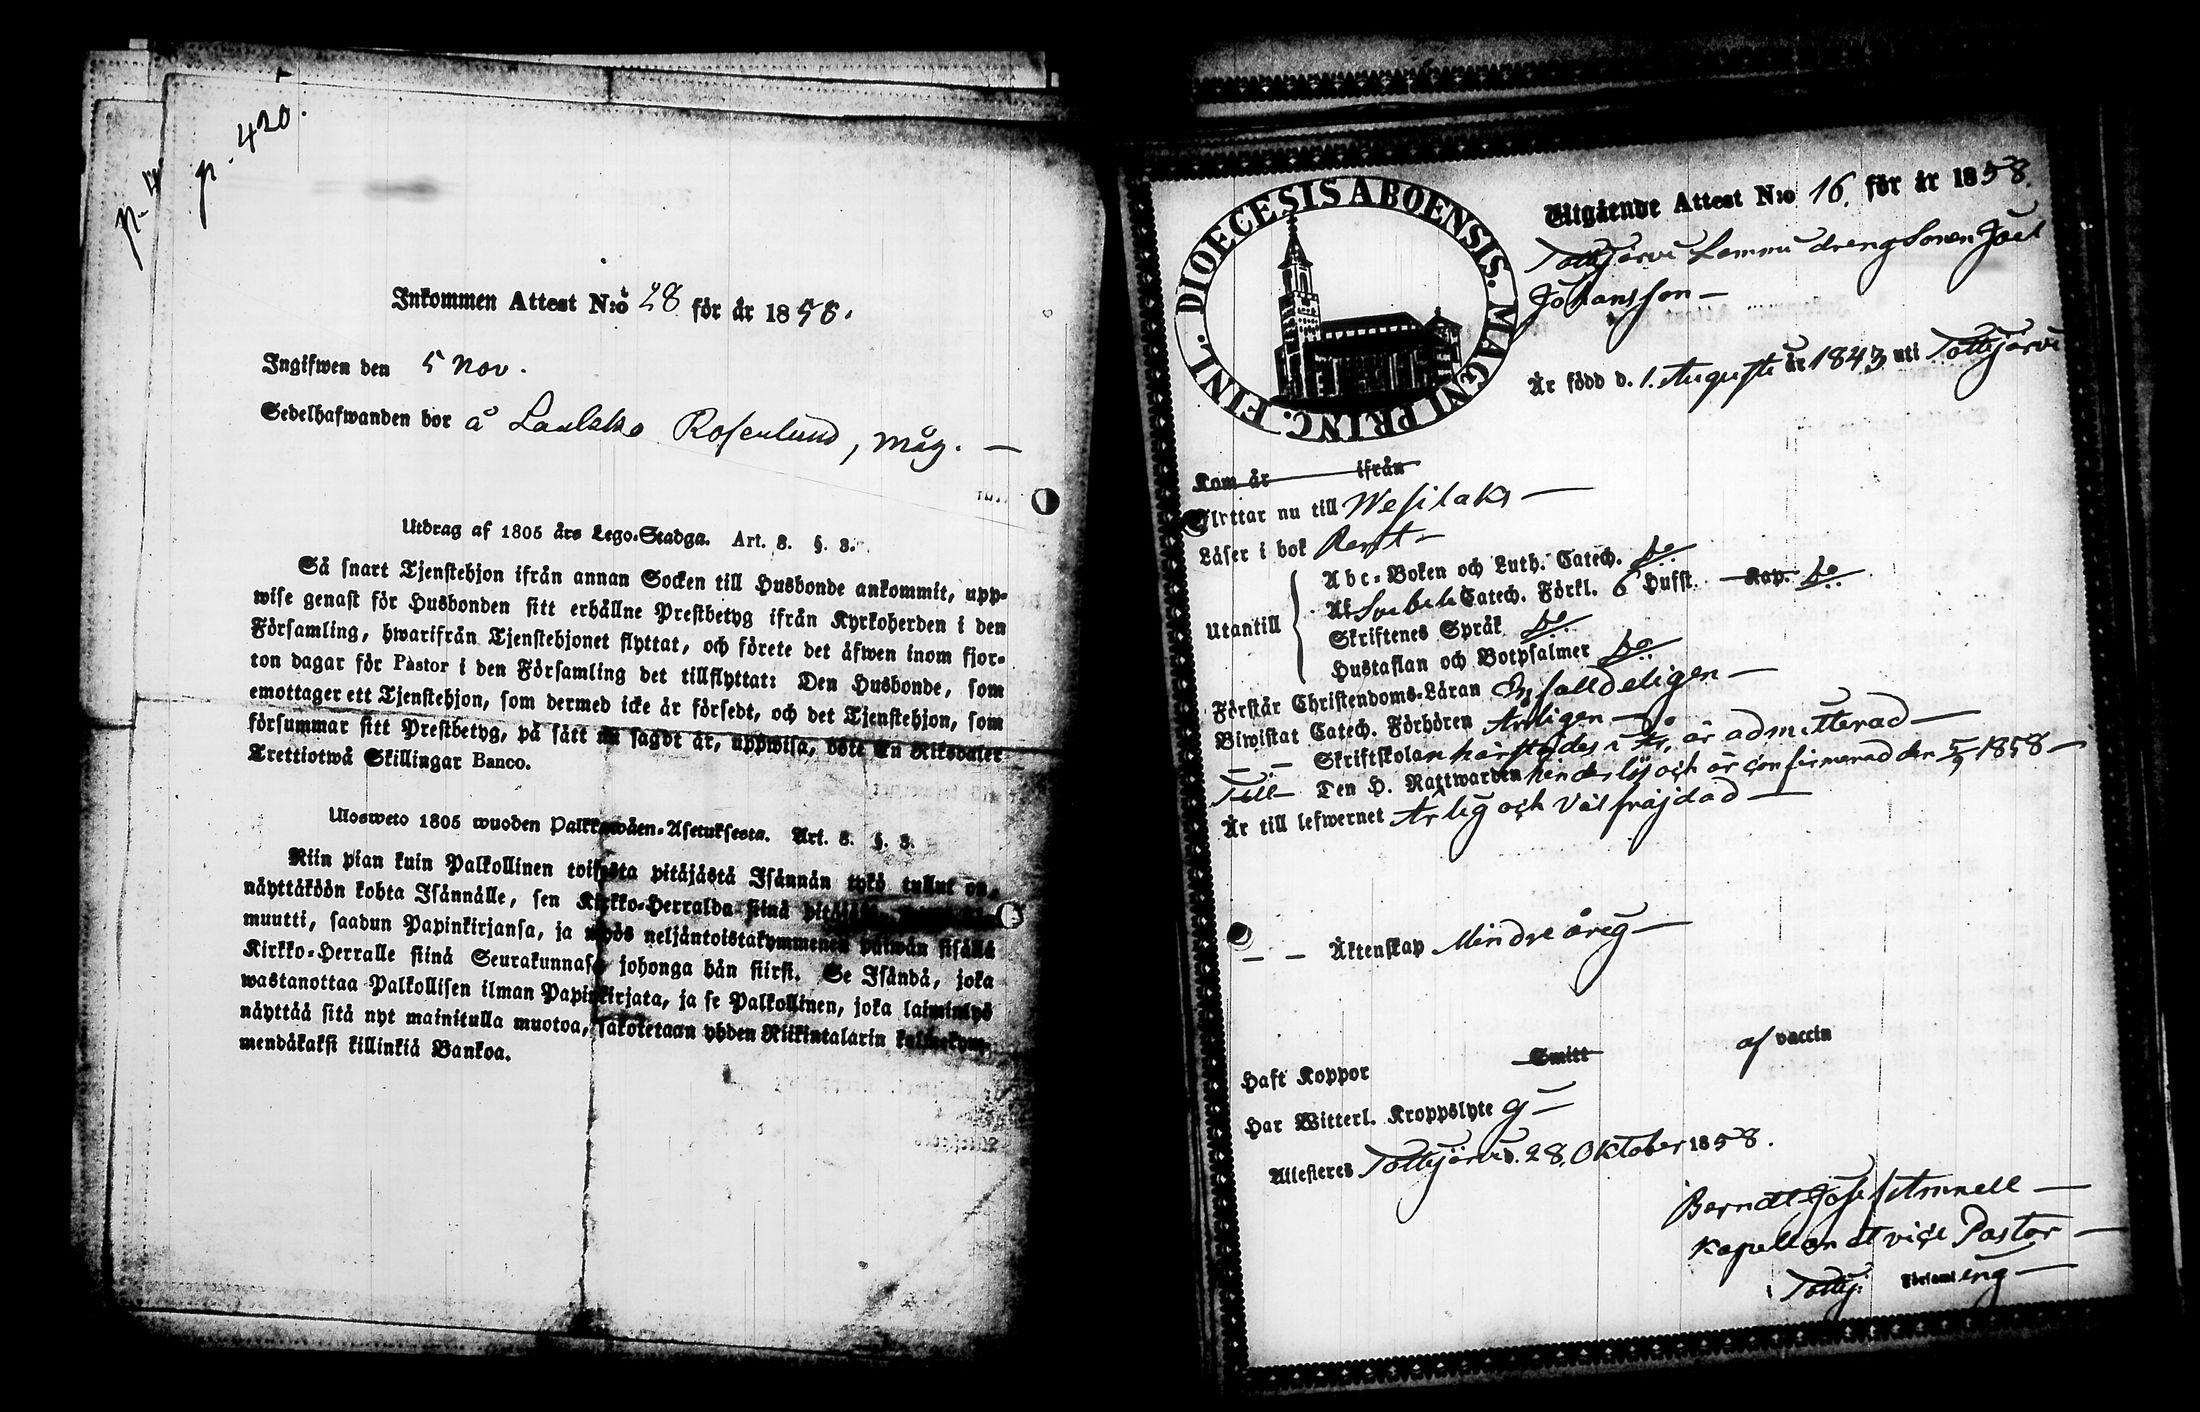 p. 420.
Inkommen Attest N:o 28 för år 1858.
Ingifwen den 5 Nov.
Sedelhafwanden bor å Laukko Rosenlund, måg. —
Utdrag af 1805 års Lego-Stadga. Art. 3. §. 3.
Så snart Tjenstehjon ifrån annan Socken till Husbonde ankommit, upp-
wise genast för Husbonden sitt erhållne Prestbetyg ifrån Kyrkoherden i den
Församling, hwarifrån Tjenstehjonet flyttat, och förete det äfwen inom fjor-
ton dagar för Pastor i den Församling det tillflyttat: Den Husbonde, som
emottager ett Tjenstehjon, som dermed icke är försedt, och det Tjenstehjon, som
försummar sitt Prestbetyg, på sätt nu sagdt är, uppwisa, böte En Riksdaler
Trettiotwå Skillingar Banco.
Ulosweto 1805 wuoden Palkkawäen-Asetuksesta. Art. 3. §. 3.
Niin pian kuin Palkollinen toisesta pitäjästä Isännän tykö tullut on,
näyttäköön kohta Isännälle, sen Kirkko-Herralda siinä
muutti, saadun Papinkirjansa, ja myös neljäntoistakymmenen päiwän sisällä
Kirkko-Herralle siinä Seurakunnasa johonga hän siirsi. Se Isändä, joka
wastanottaa Palkollisen ilman Papinkirjata, ja se Palkollinen, joka laiminlyö
näyttää sitä nyt mainitulla muotoa, sakotetaan yhden Riikintalarin kolmekym-
mendäkaksi killinkiä Bankoa.
DIOECESIS ABOENSIS. MAGNI PRINC. FINL.
Utgående Attest N:o 16. för år 1858.
Tottijärvi Lammi drengsonen Joel
Johansson —
Är född d. 1. Augusti år 1843 uti Tottijärvi
Kom år ifrån
Flyttar nu till Wesilaks —
Läser i bok Rent —
Utantill
Abc-Boken och Luth. Catech. do
Af Svebeli Catech. Förkl. 6 Hufst. Kap. do
Skriftenes Språk do
Hustaflan och Botpsalmer do
Förstår Christendoms-Läran Enfalldeligen —
Biwistat Catech. Förhören Årligen —
— — Skriftskolan härstädes i år, är admitterad —
Till — Den H. Nattwarden hinderlös och är confirmerad den 5/7 1858 —
Är till lefwernet Ärlig och Väl fräjdad —
— — Äktenskap Minderårig —
Haft Koppor Smitt af vaccin
Har Witterl. Kroppslyte ej —
Attesteres Tottijärvi d. 28. Oktober 1858.
Berndt Josef Amnell —
Kapellan et viçe Pastor —
i Tottij: Församl ing —